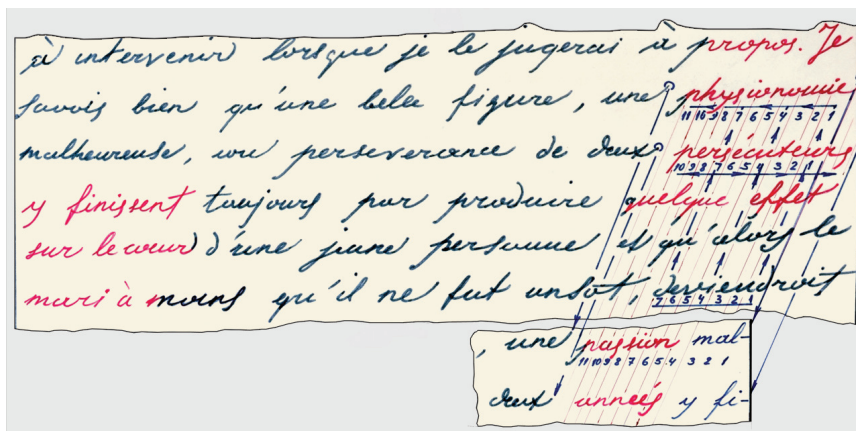 à intervenir lorsque je le jugerai à propos. Je
savois bien qu'une belle figure, une physionomie
11 10 9 8 7 6 5 4 3 2 1
malheureuse, une perseverance de deux persécuteurs
10 9 8 7 6 5 4 3 2 1
y finissent toujours par produire quelque effet
sur le cœur d'une jeune personne et qu'alors le
mari à moins qu'il ne fut un sot, deviendroit
7 6 5 4 3 2 1
, une passion mal-
11 10 9 8 7 6 5 4 3 2 1
deux années y fi-